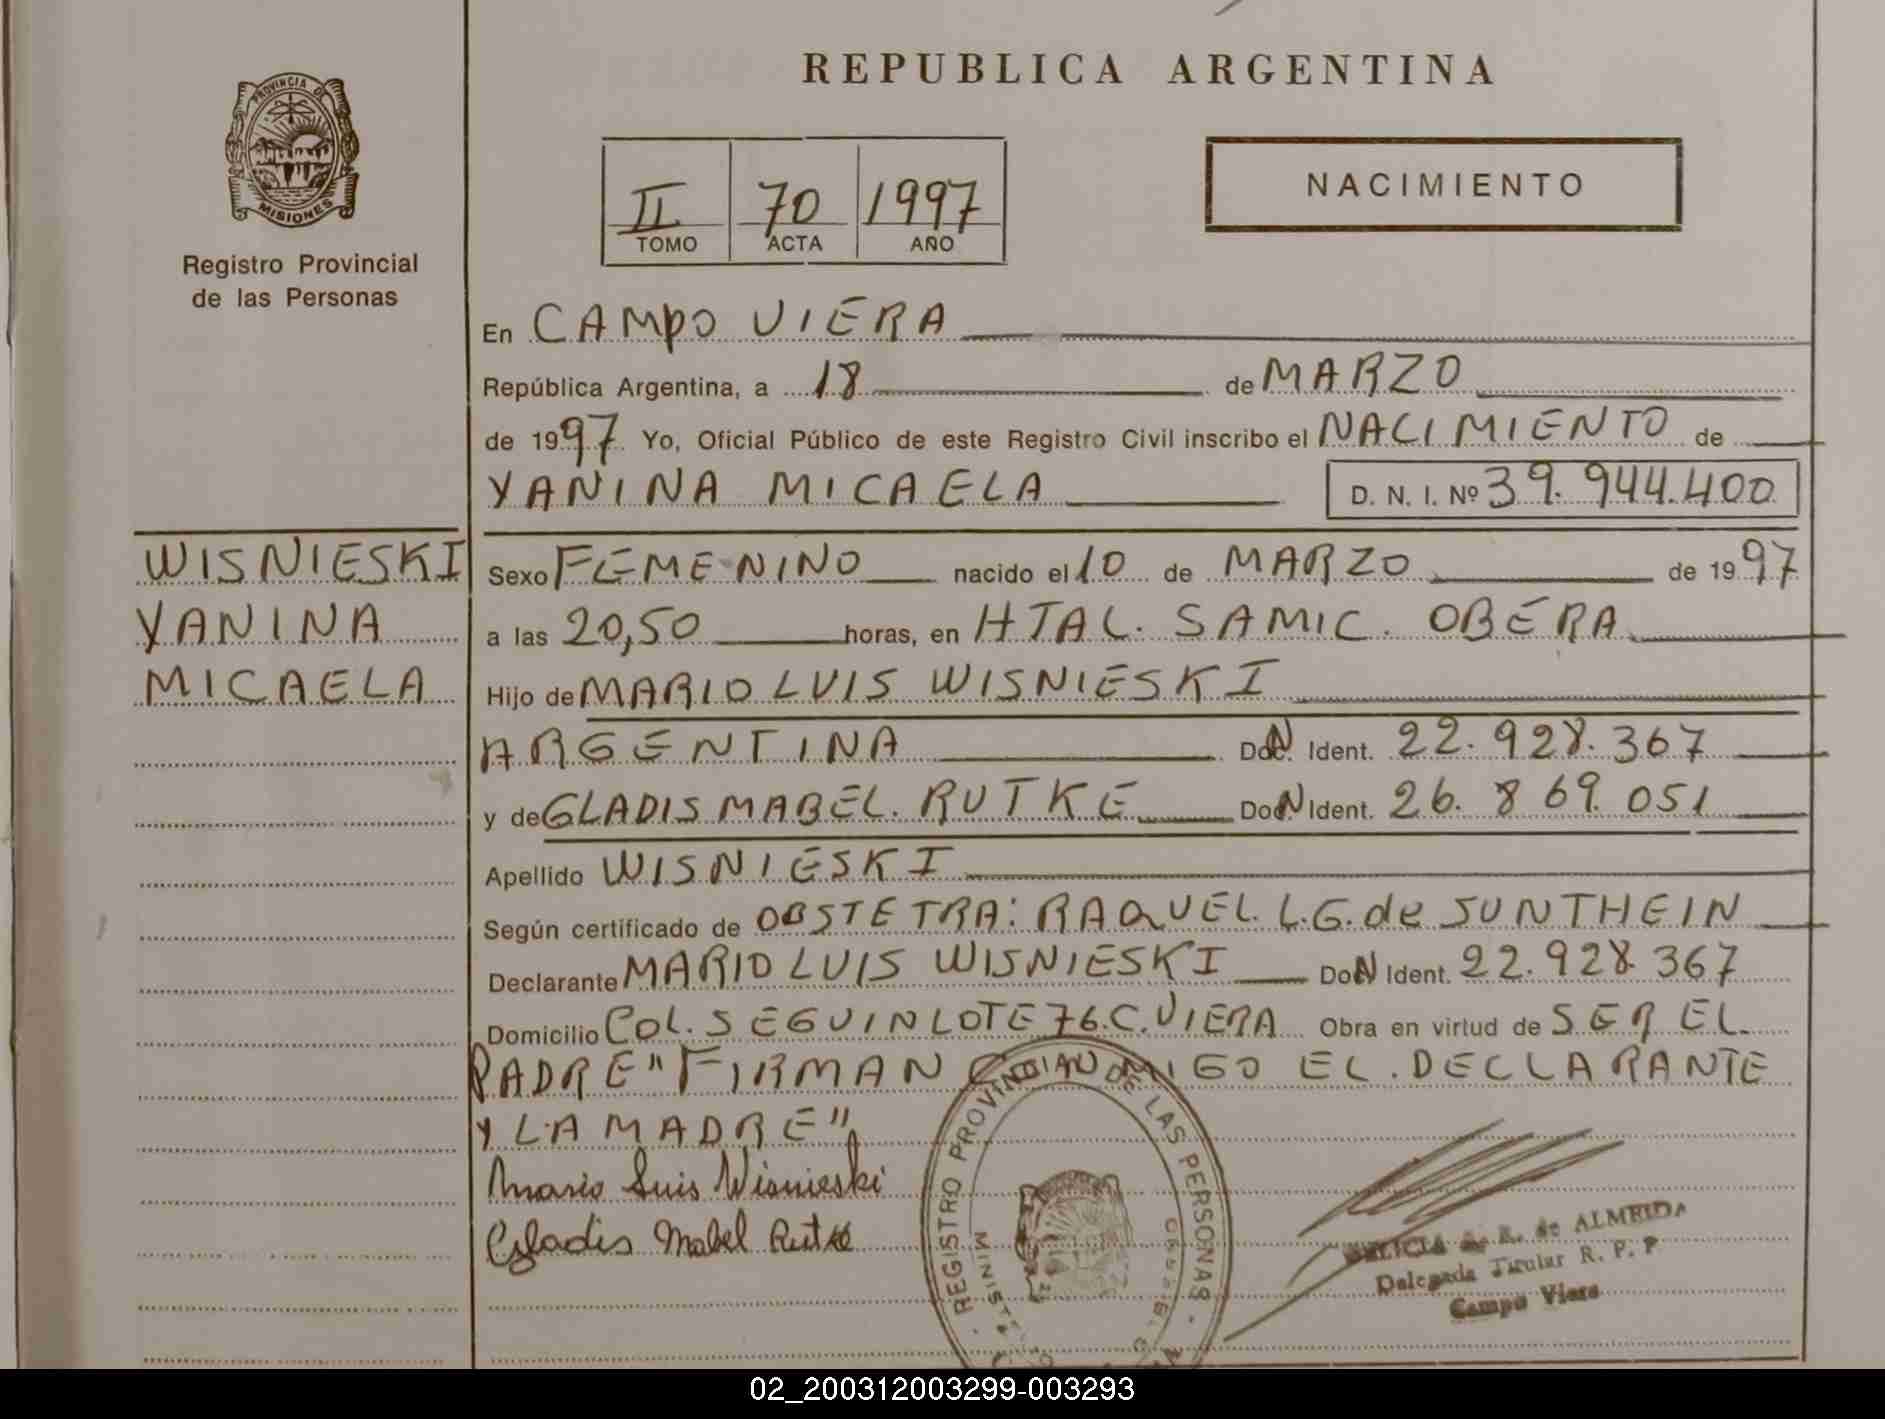 REPUBLICA ARGENTINA
PROVINCIA DE
MISIONES
Registro Provincial
de las Personas
II 70 1997
TOMO ACTA AÑO
NACIMIENTO
En CAMPO VIERA
República Argentina, a 18 de MARZO
de 1997 Yo, Oficial Público de este Registro Civil inscribo el NACIMIENTO de
YANINA MICAELA D. N. I. Nº 39.944.400
WISNIESKI
YANINA
MICAELA
Sexo FEMENINO nacido el 10 de MARZO de 1997
a las 20,50 horas, en HTAL. SAMIC. OBERA
Hijo de MARIO LUIS WISNIESKI
ARGENTINA Ident. 22.928.367
y de GLADIS MABEL. RUTKE Ident. 26.869.051
Apellido WISNIESKI
Según certificado de OBSTETRA: RAQUEL. L.G. de SUNTHEIN
Declarante MARIO LUIS WISNIESKI Ident. 22.928.367
Domicilio COL. SEGUIN LOTE 76. C. VIERA Obra en virtud de SER EL
PADRE" FIRMAN CONMIGO EL. DECLARANTE
Y LA MADRE"
Mario Luis Wisnieski
Gladis Mabel Rutke
REGISTRO PROVINCIAL DE LAS PERSONAS
de ALMEIDA
Delegada Titular R. P. P
Campo Viera
02_200312003299-003293